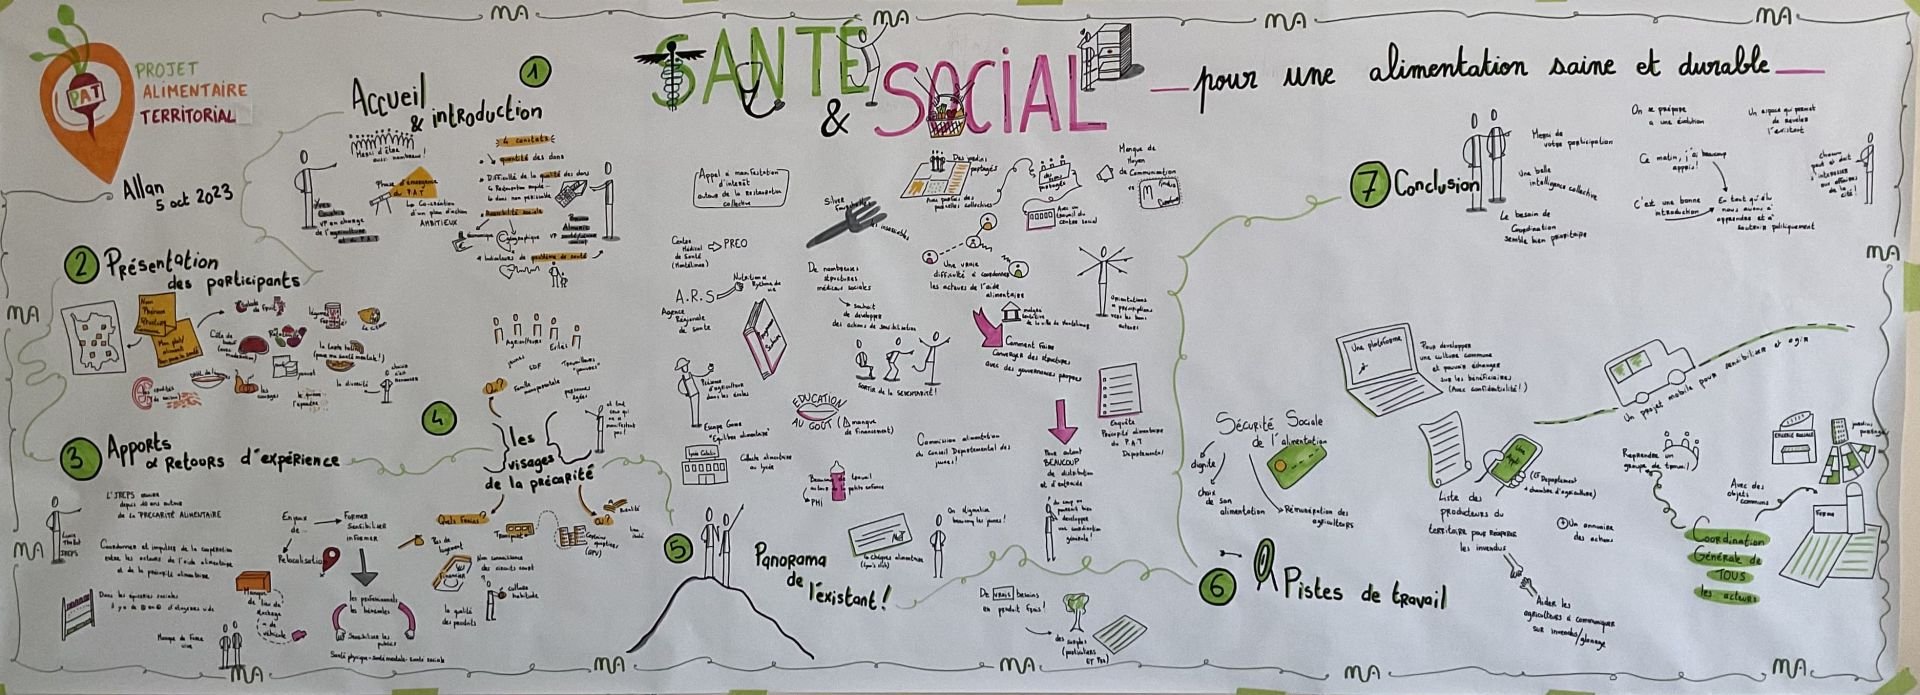 PROJET
ALIMENTAIRE
TERRITORIAL
PAT
Allan
5 oct 2023
SANTÉ
& SOCIAL
pour une alimentation saine et durable
1
Accueil
& introduction
Merci d'être
aussi nombreux!
Phase d'émergence
du P.A.T
La Co-création
d'un plan d'action
AMBITIEUX
VP en charge
de l'agriculture
et du P.A.T
4 constats
quantité des dons
Difficulté de la qualité des dons
Accessibilité sociale
économique
géographique
Indicateurs de problème de santé
2
Présentation
des participants
Nom
Prénom
Structure
Mon plat/
aliment
salade
de fruit
légumes
la diversité
les
courges
3
Apports
& Retours d'expérience
L'IREPS œuvre
depuis 20 ans autour
de la PRÉCARITÉ ALIMENTAIRE
IREPS
Coordonner et impulser de la coopération
entre les acteurs de l'aide alimentaire
et de la précarité alimentaire
Dans les épiceries sociales
Manque de Force
vive
Enjeux
de
Relocalisation
Former
Sensibiliser
informer
les professionnels
les bénévoles
Sensibiliser les
publics
Manque
de lieu de
stockage
de
véhicule
Santé physique - santé mentale - santé sociale
4
les
visages
de la précarité
Qui?
Agriculteurs
Exilés
jeunes
SDF
famille
monoparentale
Travailleurs
"pauvres"
personnes
âgées
et tout
ceux qui
ne se
manifestent
pas!
Quels freins?
Pas de
logement
Financier
Transport
Non connaissance
des circuits court
culture
habitude
la qualité
des produits
Où?
Certains
quartiers
(QPV)
Ruralité
5
Panorama
de l'existant!
Appel à manifestation
d'intérêt
autour de la restauration
collective
Centre
Médical
de Santé
(Montélimar)
PREO
A.R.S
Agence
Régionale
de Santé
Nutrition &
Rythme de
vie
Silver
De nombreuses
structures
médico sociales
souhait
de développer
des actions de sensibilisation
SORTIR DE LA SÉDENTARITÉ!
dans les écoles
Escape Game
"Equilibre alimentaire"
Collecte alimentaire
au lycée
EDUCATION
AU GOÛT
(manque
de financement)
Beaucoup de travail
autour de la petite enfance
PMI
Commission alimentation
du Conseil Départemental des
jeunes!
On stigmatise
beaucoup les jeunes!
chèques alimentaires
De vrais besoins
en produit frais!
des surplus
(particuliers
ET Pro)
Des jardins
partagés
Avec parfois des
parcelles collectives
Avec un
travail du
centre social
Manque de
Moyen
de Communication
vs
Une vraie
difficulté à coordonner
les acteurs de l'aide
alimentaire
Comment faire
Converger des structures
avec des gouvernances propres
orientations
& prescriptions
vers les bons
acteurs
Enquête
Précarité alimentaire
du P.A.T
Départemental
Pour autant
BEAUCOUP
de distribution
et d'entraide
du coup on
pourrait bien
développer
une coordination
générale!
6
Pistes de travail
Sécurité Sociale
de l'alimentation
dignité
choix
de son
alimentation
Rémunération des
agriculteurs
Une plateforme
Pour développer
une culture commune
et pouvoir échanger
sur les bénéficiaires
(Avec confidentialité!)
Liste des
producteurs du
territoire pour récupérer
les invendus
Une
Appli
(Cf Département
& chambre d'agriculture)
Un annuaire
des actions
Aider les
agriculteurs à communiquer
sur invendus/glanage
Un projet mobile pour sensibiliser et agir
Reprendre un
groupe de travail
Coordination
Générale de
TOUS
les acteurs
Avec des
objets
communs
EPICERIE SOCIALE
jardins
partagés
Ferme
7
Conclusion
Merci de
votre participation
Une belle
intelligence collective
Le besoin de
Coordination
semble bien prioritaire
On se prépare
à une évolution
Ce matin, j'ai beaucoup
appris!
C'est une bonne
introduction
En tant qu'élu
nous avons à
apprendre et à
soutenir politiquement
Un espace qui permet
de révéler
l'existant
chacun
peut et doit
s'intéresser
aux affaires
de la
cité!
MA
MA
MA
MA
MA
MA
MA
MA
MA
MA
MA
MA